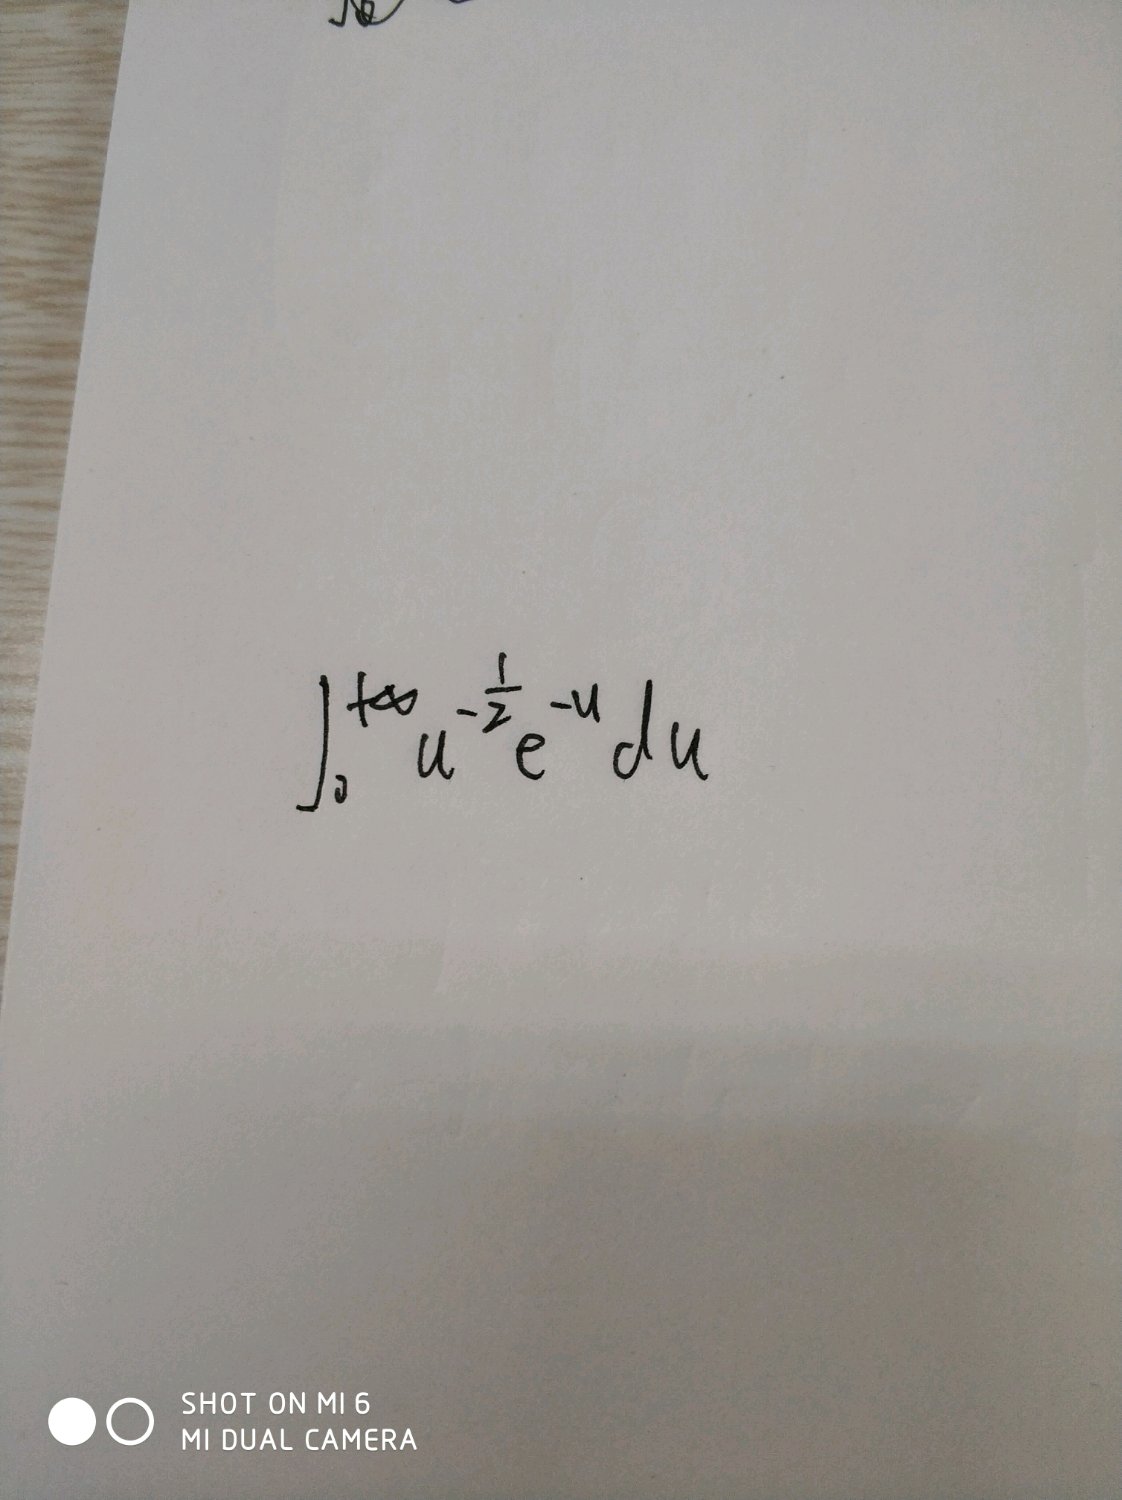 ∫₀^{+∞} u^{-1/2} e^{-u} du
SHOT ON MI 6
MI DUAL CAMERA